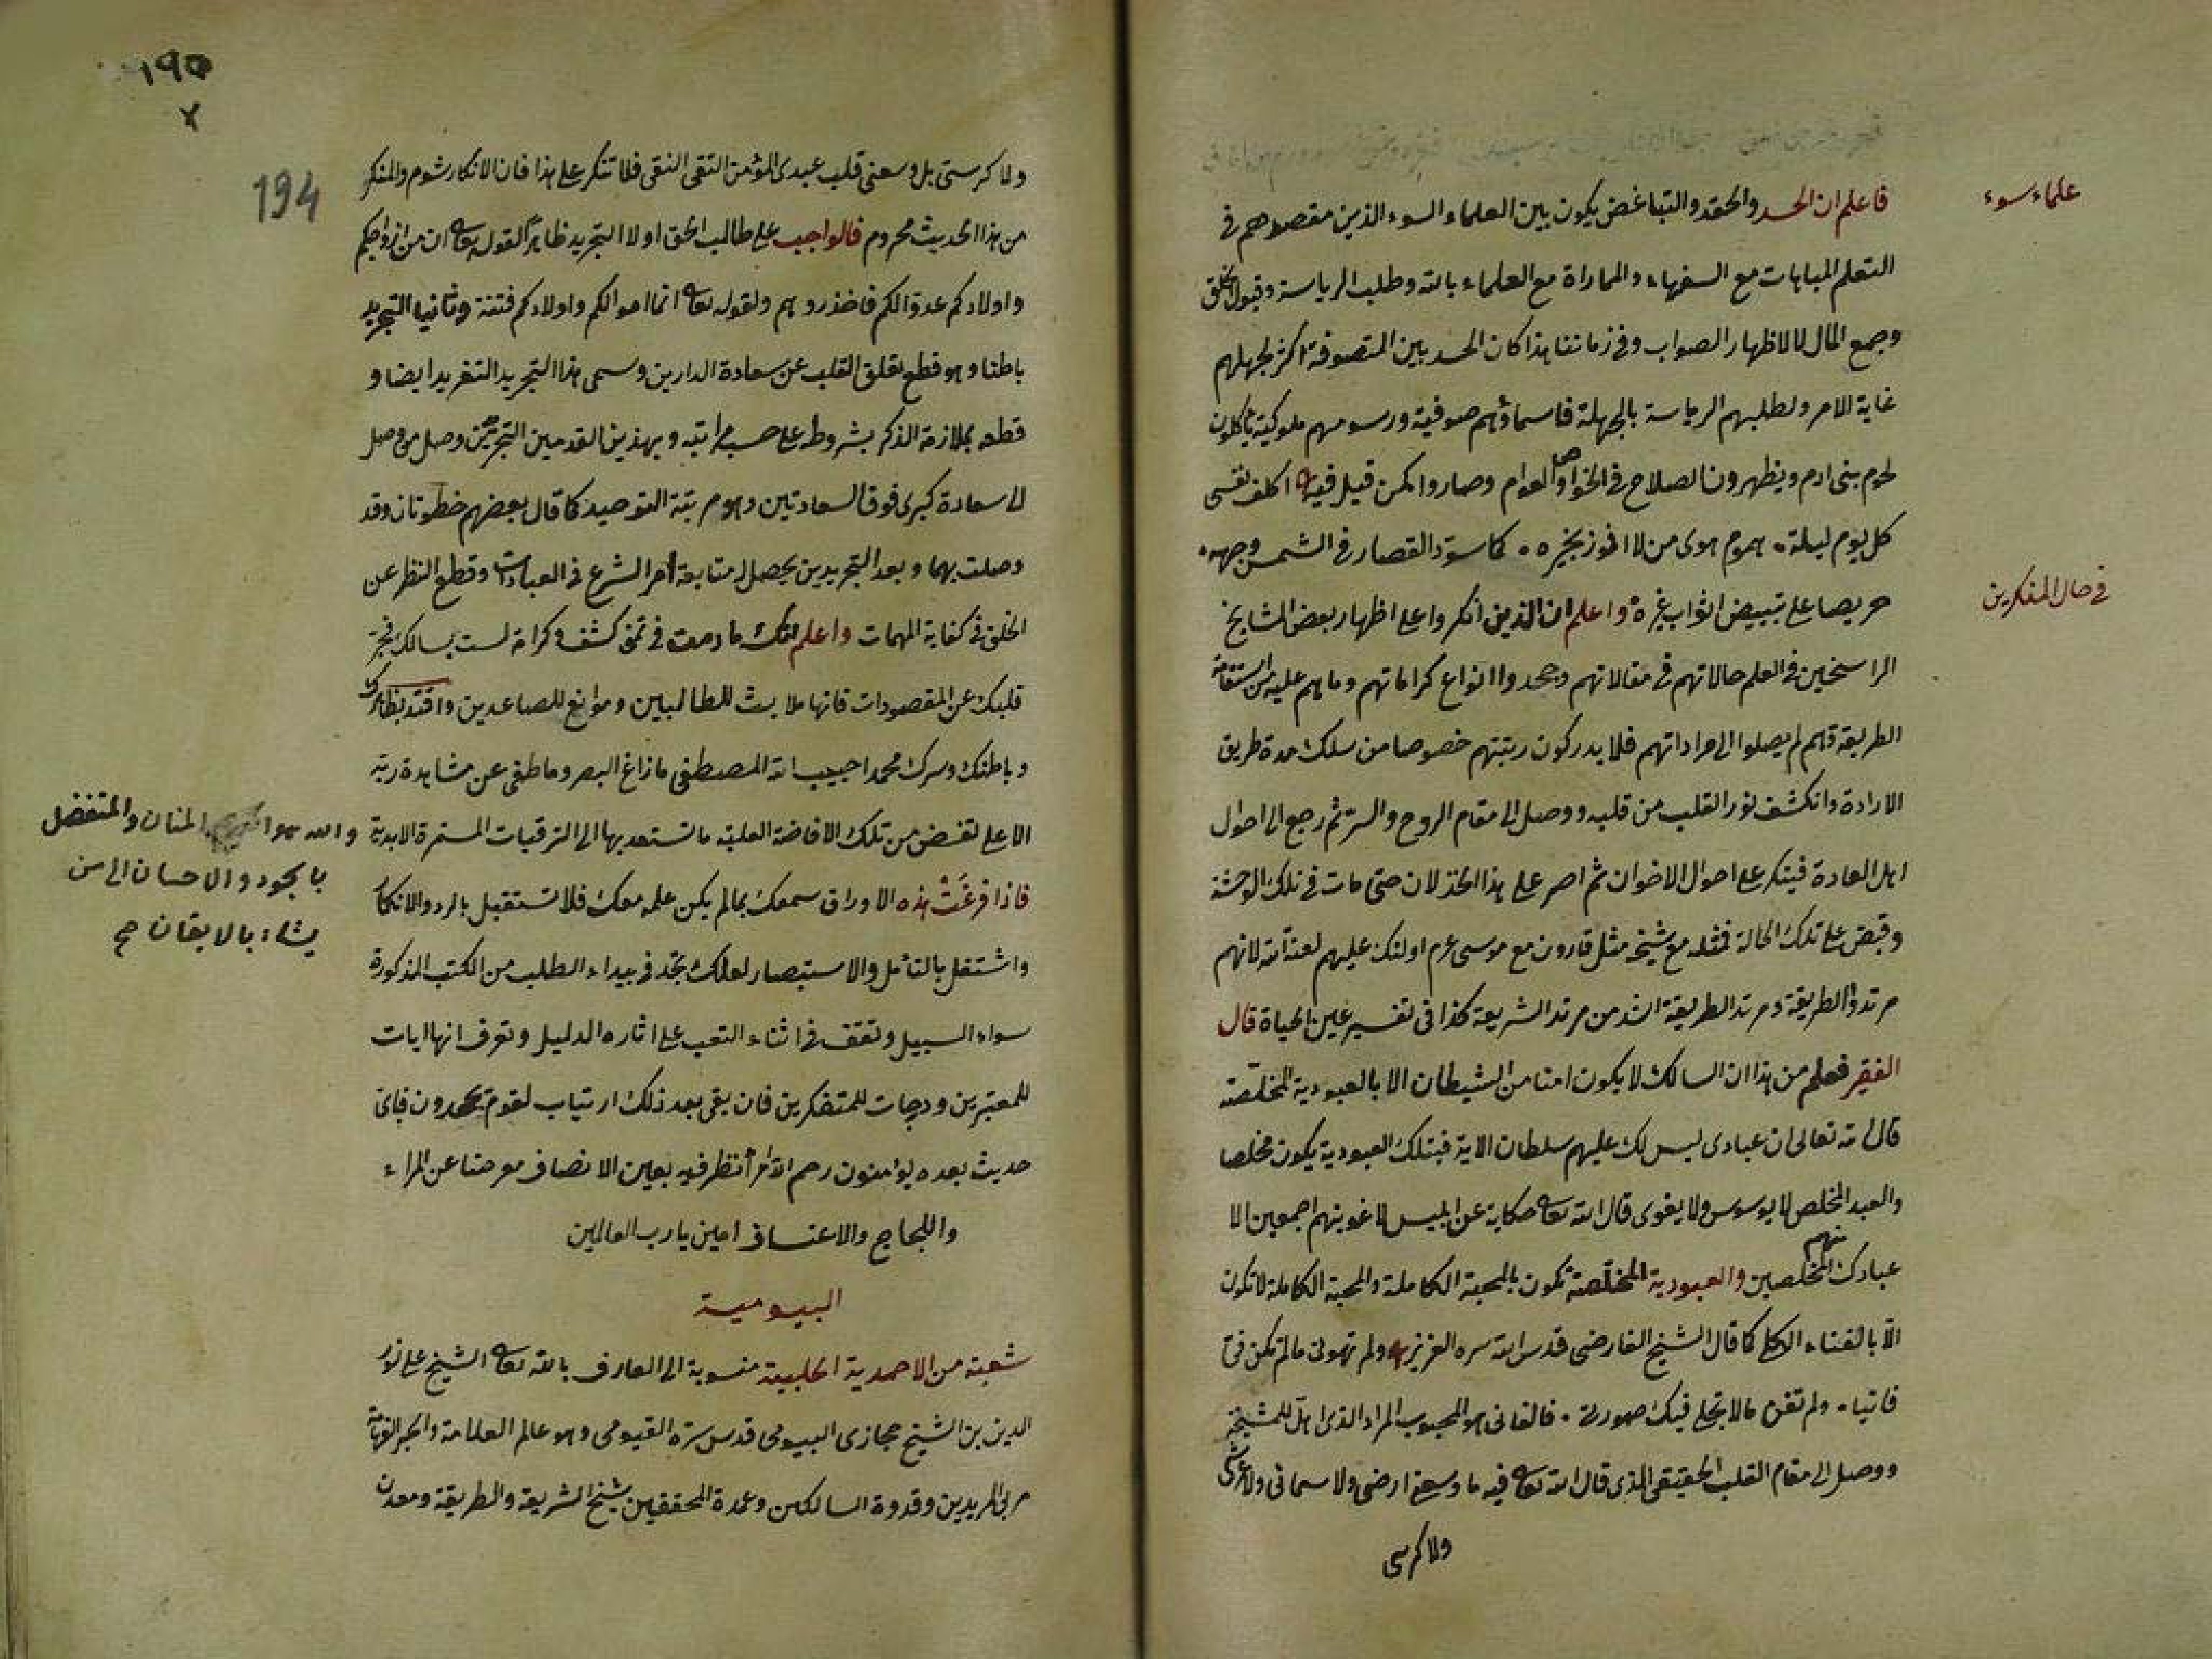 علماء سوء
فاعلم ان الحسد والحقد والتباغض يكون بين العلماء السوء الذين مقصودهم في
التعلم المباهات مع السفهاء والمماراة مع العلماء بالله وطلب الرياسة وقبول الخلق
وجمع المال لا لاظهار الصواب وفي زماننا هذا كان الحسد بين المتصوفة اكثر لجهلهم
غاية الامر ولطلبهم الرياسة بالجهلة فاسماؤهم صوفية ورسومهم ملوكية ياكلون
لحوم بني ادم ويظهرون الصلاح في الخواص والعوام وصاروا كمن قيل فيه اكلف نفسي
كل يوم ليلة هموم هوى من لا افوز بخيره كما سود القصار في الشمس وجهه
في حال المنكرين
حريصا على تبييض اثواب غيره واعلم ان الذين انكروا على اظهار بعض المشايخ
الراسخين في العلم حالاتهم في مقالاتهم وجحدوا انواع كراماتهم وما هم عليه من استقامة
الطريقة فهم لم يصلوا الى مراداتهم فلا يدركون رتبتهم خصوصا من سلك مدة طريق
الارادة وانكشف نور القلب من قلبه ووصل الى مقام الروح والسر ثم رجع الى احوال
اهل العادة فينكر على احوال الاخوان ثم اصر على هذا الخذلان حتى مات في تلك الوحشة
وقبض على تلك الحالة فمثله مع شيخه مثل قارون مع موسى عرم اولئك عليهم لعنة الله لانهم
مرتدوا الطريقة ومرتد الطريقة اشد من مرتد الشريعة كذا في تفسير عين الحياة قال
الفقير فعلم من هذا ان السالك لا يكون امنا من الشيطان الا بالعبودية المخلصة
قال الله تعالى ان عبادى ليس لك عليهم سلطان الاية فبتلك العبودية يكون مخلصا
والعبد المخلص لا يوسوس ولا يغوى قال الله تعالى حكاية عن ابليس لاغوينهم اجمعين الا
عبادك منهم المخلصين والعبودية المخلصة تكون بالمحبة الكاملة والمحبة الكاملة لا تكون
الا بالفناء الكلى كما قال الشيخ الفارضى قدس الله سره العزيز ولم تهوني مالم تكن في
فانيا ولم تفن مالا تجلى فيك صورتي فالفانى هو المحبوب المراد الذي اهل للمشيخة
ووصل الى مقام القلب الحقيقى الذى قال الله تعالى فيه ما وسعني ارضى ولا سمائى ولا عرشى
ولا كرسى
١٩٥
194
ولا كرسيى بل وسعنى قلب عبدى المؤمن التقى النقى فلا تنكر على هذا فان الانكار شوم والمنكر
من هذا الحديث محروم فالواجب على طالب الحق اولا التجريد ظاهرا لقوله تعالى ان من ازواجكم
واولادكم عدوا لكم فاحذروهم ولقوله تعالى انما اموالكم واولادكم فتنة وثانيا التجريد
باطنا وهو قطع تعلق القلب عن سعادة الدارين وسمى هذا التجريد التفريد ايضا و
قطعه بملازمة الذكر بشروطه على حسب مراتبه وبهذين القدمين التجريدين وصل من وصل
الى سعادة كبرى فوق السعادتين وهو مرتبة التوحيد كما قال بعضهم خطوتان وقد
وصلت بهما وبعد التجريدين يحصل له متابعة امر الشرع في العبادات وقطع النظر عن
الخلق في كفاية المهمات واعلم انك ما دمت في تمنى كشف وكرامة لست بسالك فجرد
قلبك عن المقصودات فانها ملابث للطالبين وموانع للصاعدين واقتد بظاهرك
وباطنك وسرك محمدا حبيب الله المصطفى ما زاغ البصر وما طغى عن مشاهدة ربه
الاعلى لتفض من تلك الافاضة العلية ما تستعد بها الى الترقيات المستمرة الابدية
والله هو المنان والمتفضل
بالجود والاحسان الى من
يشاء بالايقان صح
فاذا قرعت هذه الاوراق سمعك بما لم يكن علمه معك فلا تستقبل بالرد والانكار
واشتغل بالتأمل والاستبصار لعلك تجد في بيداء الطلب من الكتب المذكورة
سواء السبيل وتقف في اثناء التعب على اثاره الدليل وتعرف انها ايات
للمعتبرين ودرجات للمتفكرين فان بقى بعد ذلك ارتياب لقوم يجحدون فباى
حديث بعده يؤمنون رحم الله امرأ نظر فيه بعين الانصاف معرضا عن المراء
واللجاج والاعتساف امين يا رب العالمين
البيومية
شعبة من الاحمدية الحلبية منسوبة الى العارف بالله تعالى الشيخ على نور
الدين بن الشيخ حجازى البيومى قدس سره القيومى وهو عالم العلامة والحبر الفهامة
مربى المريدين وقدوة السالكين وعمدة المحققين شيخ الشريعة والطريقة ومعدن